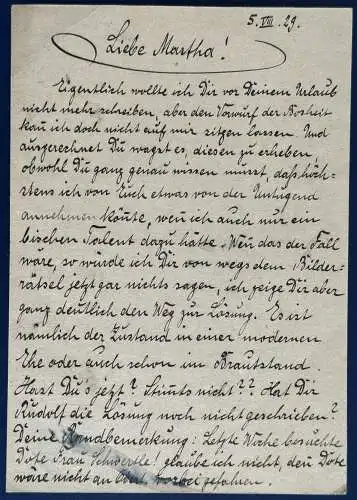 5. VIII. 29.
Liebe Martha!
Eigentlich wollte ich Dir vor Deinem Urlaub
nicht mehr schreiben, aber den Vorwurf der Bosheit
kan ich doch nicht auf mir sitzen lassen. Und
ausgerechnet Du wagst es, diesen zu erheben
obwohl Du ganz genau wissen musst, daß höch-
stens ich von Euch etwas von der Untugend
annehmen könte, wen ich auch nur ein
bischen Talent dazu hätte. Wen das der Fall
wäre, so würde ich Dir von wegs dem Bilder-
rätsel jetzt gar nichts sagen, ich zeige Dir aber
ganz deutlich den Weg zur Lösung. Es ist
nämlich der Zustand in einer modernen
Ehe oder auch schon im Brautstand.
Hast Du's jetzt? Stimts nicht?? Hat Dir
Rudolf die Lösung noch nicht geschrieben?
Deine Randbemerkung: Letzte Woche besuchte
Dote Frau Schwertle! glaube ich nicht, den Dote
wäre nicht an vorbei gefahren.